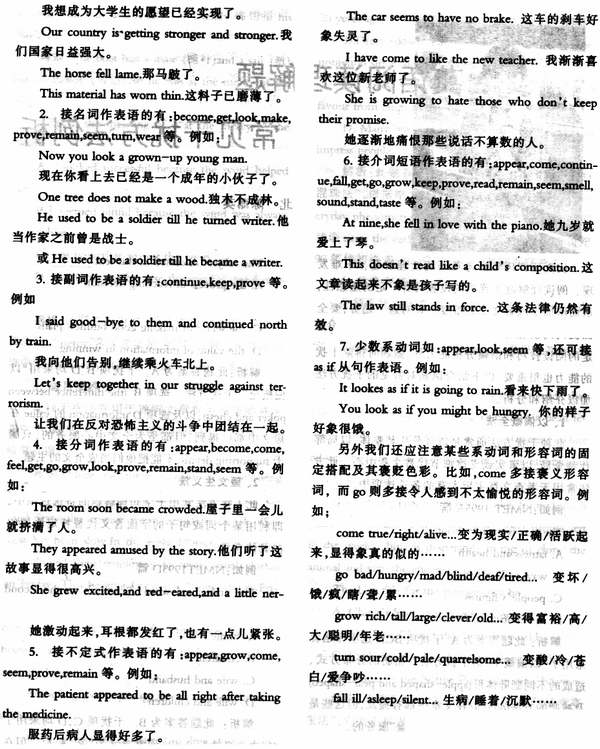 我想成为大学生的愿望已经实现了。
Our country is getting stronger and stronger.我
们国家日益强大。
The horse fell lame.那马跛了。
This material has worn thin.这料子已磨薄了。
2. 接名词作表语的有:become,get,look,make,
prove,remain,seem,turn,wear 等。例如:
Now you look a grown-up young man.
现在你看上去已经是一个成年的小伙子了。
One tree does not make a wood.独木不成林。
He used to be a soldier till he turned writer.他
当作家之前曾是战士。
或 He used to be a soldier till he became a writer.
3. 接副词作表语的有:continue,keep,prove 等。
例如
I said good-bye to them and continued north
by train.
我向他们告别,继续乘火车北上。
Let's keep together in our struggle against ter-
rorism.
让我们在反对恐怖主义的斗争中团结在一起。
4. 接分词作表语的有:appear,become,come,
feel,get,go,grow,look,prove,remain,stand,seem 等。例
如:
The room soon became crowded.屋子里一会儿
就挤满了人。
They appeared amused by the story.他们听了这
故事显得很高兴。
She grew excited,and red-eared,and a little ner-
她激动起来,耳根都发红了,也有一点儿紧张。
5. 接不定式作表语的有:appear,grow,come,
seem,prove,remain 等。例如:
The patient appeared to be all right after taking
the medicine.
服药后病人显得好多了。
The car seems to have no brake. 这车的刹车好
象失灵了。
I have come to like the new teacher. 我渐渐喜
欢这位新老师了。
She is growing to hate those who don't keep
their promise.
她逐渐地痛恨那些说话不算数的人。
6. 接介词短语作表语的有:appear,come,contin-
ue,fall,get,go,grow,keep,prove,read,remain,seem,smell,
sound,stand,taste 等。例如:
At nine,she fell in love with the piano.她九岁就
爱上了琴。
This doesn't read like a child's composition.这
文章读起来不象是孩子写的。
The law still stands in force. 这条法律仍然有
效。
7. 少数系动词如:appear,look,seem 等,还可接
as if 从句作表语。例如:
It lookes as if it is going to rain.看来快下雨了。
You look as if you might be hungry. 你的样子
好象很饿。
另外我们还应注意某些系动词和形容词的固
定搭配及其褒贬色彩。比如,come 多接褒义形容
词，而 go 则多接令人感到不太愉悦的形容词。例
如:
come true/right/alive...变为现实/正确/活跃起
来,显得象真的似的……
go bad/hungry/mad/blind/deaf/tired... 变坏/
饿/疯/瞎/聋/累……
grow rich/tall/large/clever/old... 变得富裕/高/
大/聪明/年老……
turn sour/cold/pale/quarrelsome... 变酸/冷/苍
白/爱争吵……
fall ill/asleep/silent... 生病/睡着/沉默……